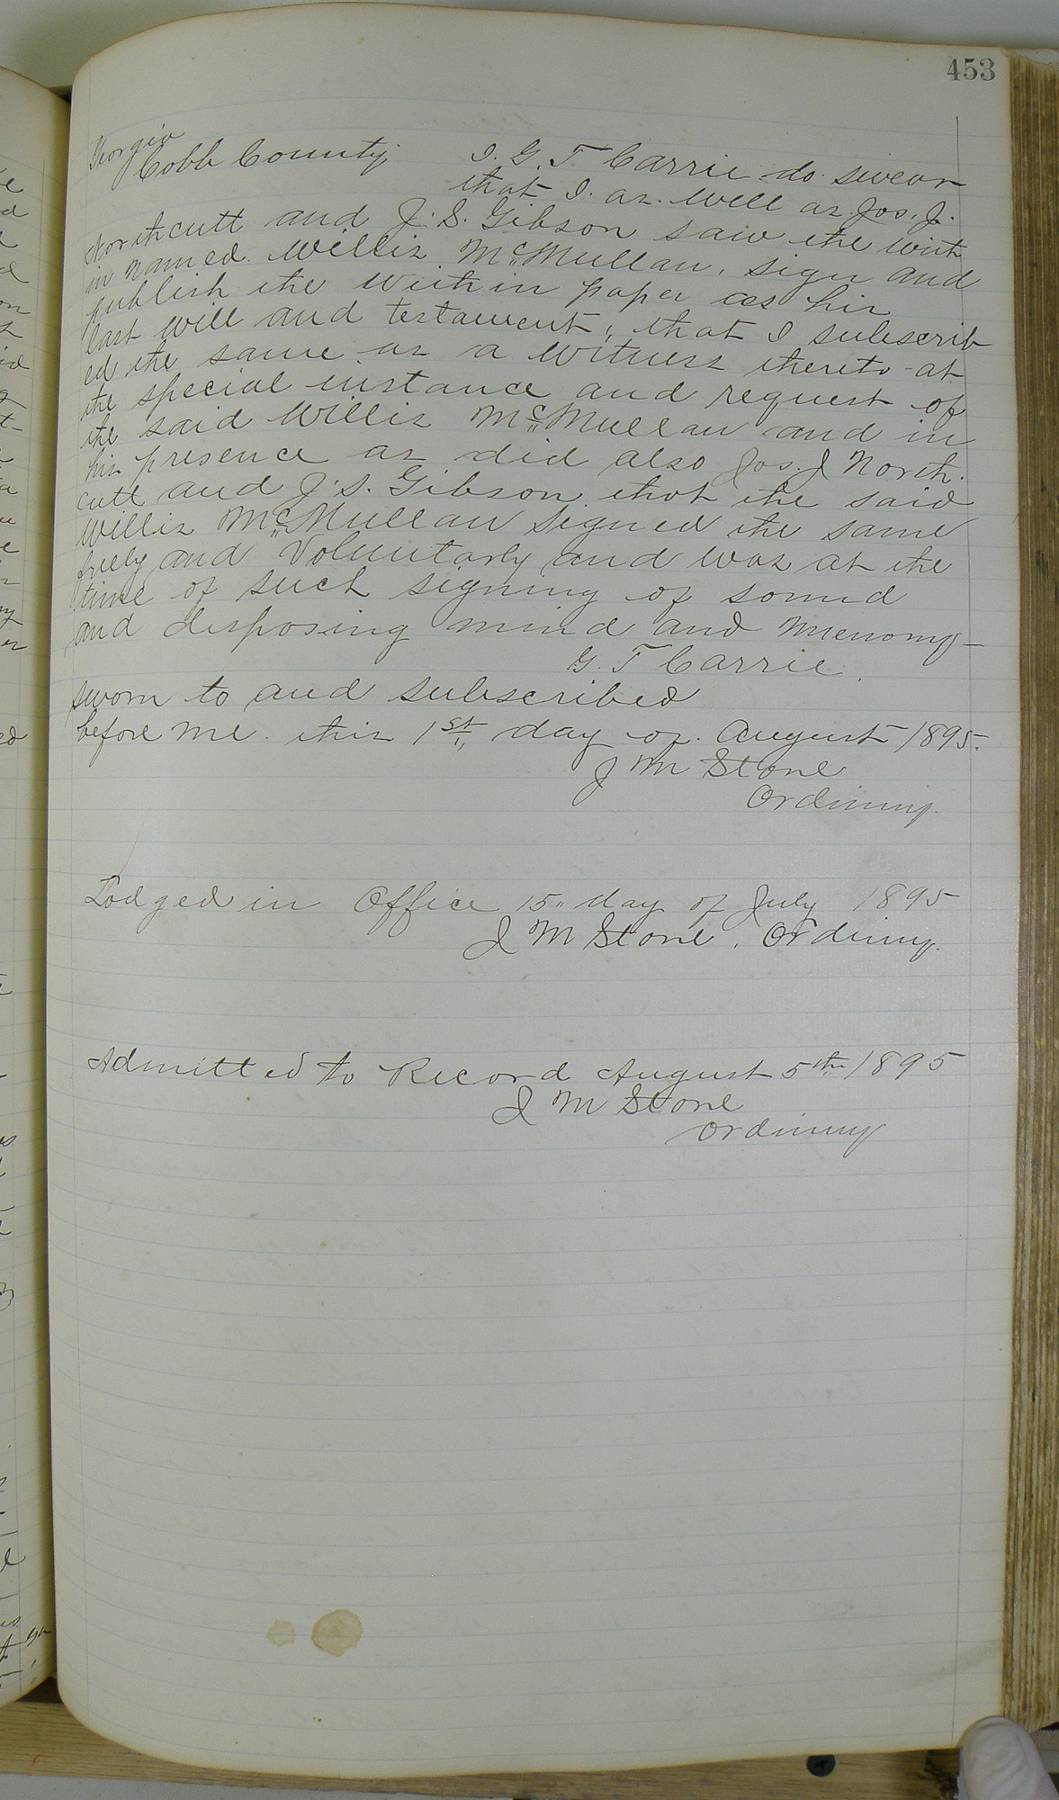 453
Georgia
Cobb County I. G. T Carrie do swear
that I. as. well as Jos. J.
Northcutt and J. S. Gibson saw the with
in named. Willis McMullan, sign and
publish the within paper as his
last will and testament, that I subscrib
ed the same as a witness thereto at
the special instance and request of
the said Willis McMullan and in
his presence as did also Jos. J North.
cutt and J. S. Gibson that the said
Willis McMullan signed the same
freely and Voluntarly and was at the
time of such signing of sound
and disposing mind and memory
G. T Carrie.
sworn to and subscribed
before me. this 1st, day of. August 1895.
J M Stone
Ordinary.
Lodged in Office 15" day of July 1895
J M Stone. Ordinary.
Admitted to Record August 5th 1895
J M Stone
Ordinary